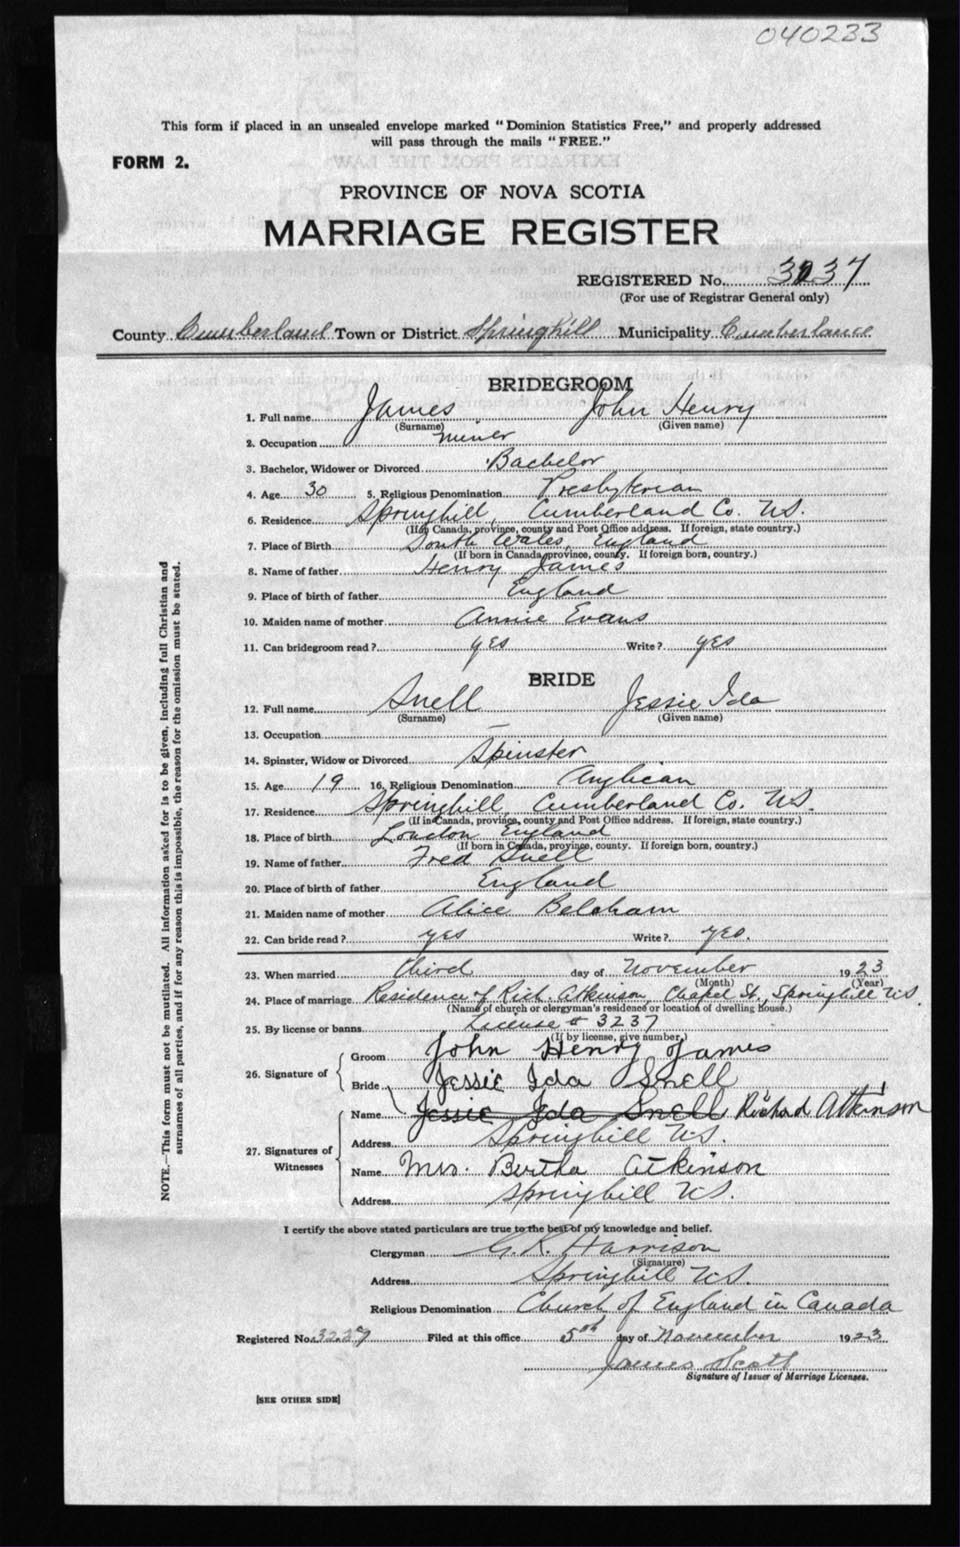 040233
This form if placed in an unsealed envelope marked "Dominion Statistics Free," and properly addressed
will pass through the mails "FREE."
FORM 2.
PROVINCE OF NOVA SCOTIA
MARRIAGE REGISTER
REGISTERED No. 3237
(For use of Registrar General only)
County Cumberland Town or District Springhill Municipality Cumberland
BRIDEGROOM
1. Full name James John Henry
(Surname) (Given name)
2. Occupation miner
3. Bachelor, Widower or Divorced Bachelor
4. Age 30 5. Religious Denomination Presbyterian
6. Residence Springhill, Cumberland Co. N.S.
(If in Canada, province, county and Post Office address. If foreign, state country.)
7. Place of Birth South Wales, England
(If born in Canada, province, county. If foreign born, country.)
8. Name of father Henry James
9. Place of birth of father England
10. Maiden name of mother Annie Evans
11. Can bridegroom read? yes Write? yes
BRIDE
12. Full name Snell Jessie Ida
(Surname) (Given name)
13. Occupation —
14. Spinster, Widow or Divorced Spinster
15. Age 19 16. Religious Denomination Anglican
17. Residence Springhill, Cumberland Co. N.S.
(If in Canada, province, county and Post Office address. If foreign, state country.)
18. Place of birth London England
(If born in Canada, province, county. If foreign born, country.)
19. Name of father Fred Snell
20. Place of birth of father England
21. Maiden name of mother Alice Belcham
22. Can bride read? yes Write? yes.
23. When married third day of November 1923
(Month) (Year)
24. Place of marriage Residence of Rich. Atkinson, Chapel St., Springhill N.S.
(Name of church or clergyman's residence or location of dwelling house.)
25. By license or banns License # 3237
(If by license, give number.)
26. Signature of
Groom John Henry James
Bride Jessie Ida Snell
27. Signatures of Witnesses
Name Jessie Ida Snell Richard Atkinson
Address Springhill N.S.
Name Mrs. Bertha Atkinson
Address Springhill N.S.
I certify the above stated particulars are true to the best of my knowledge and belief.
Clergyman G. R. Harrison
(Signature)
Address Springhill N.S.
Religious Denomination Church of England in Canada
Registered No. 3237 Filed at this office 5th day of November 1923
James Scott
Signature of Issuer of Marriage Licenses.
[SEE OTHER SIDE]
NOTE.—This form must not be mutilated. All information asked for is to be given, including full Christian and
surnames of all parties, and if for any reason this is impossible, the reason for the omission must be stated.